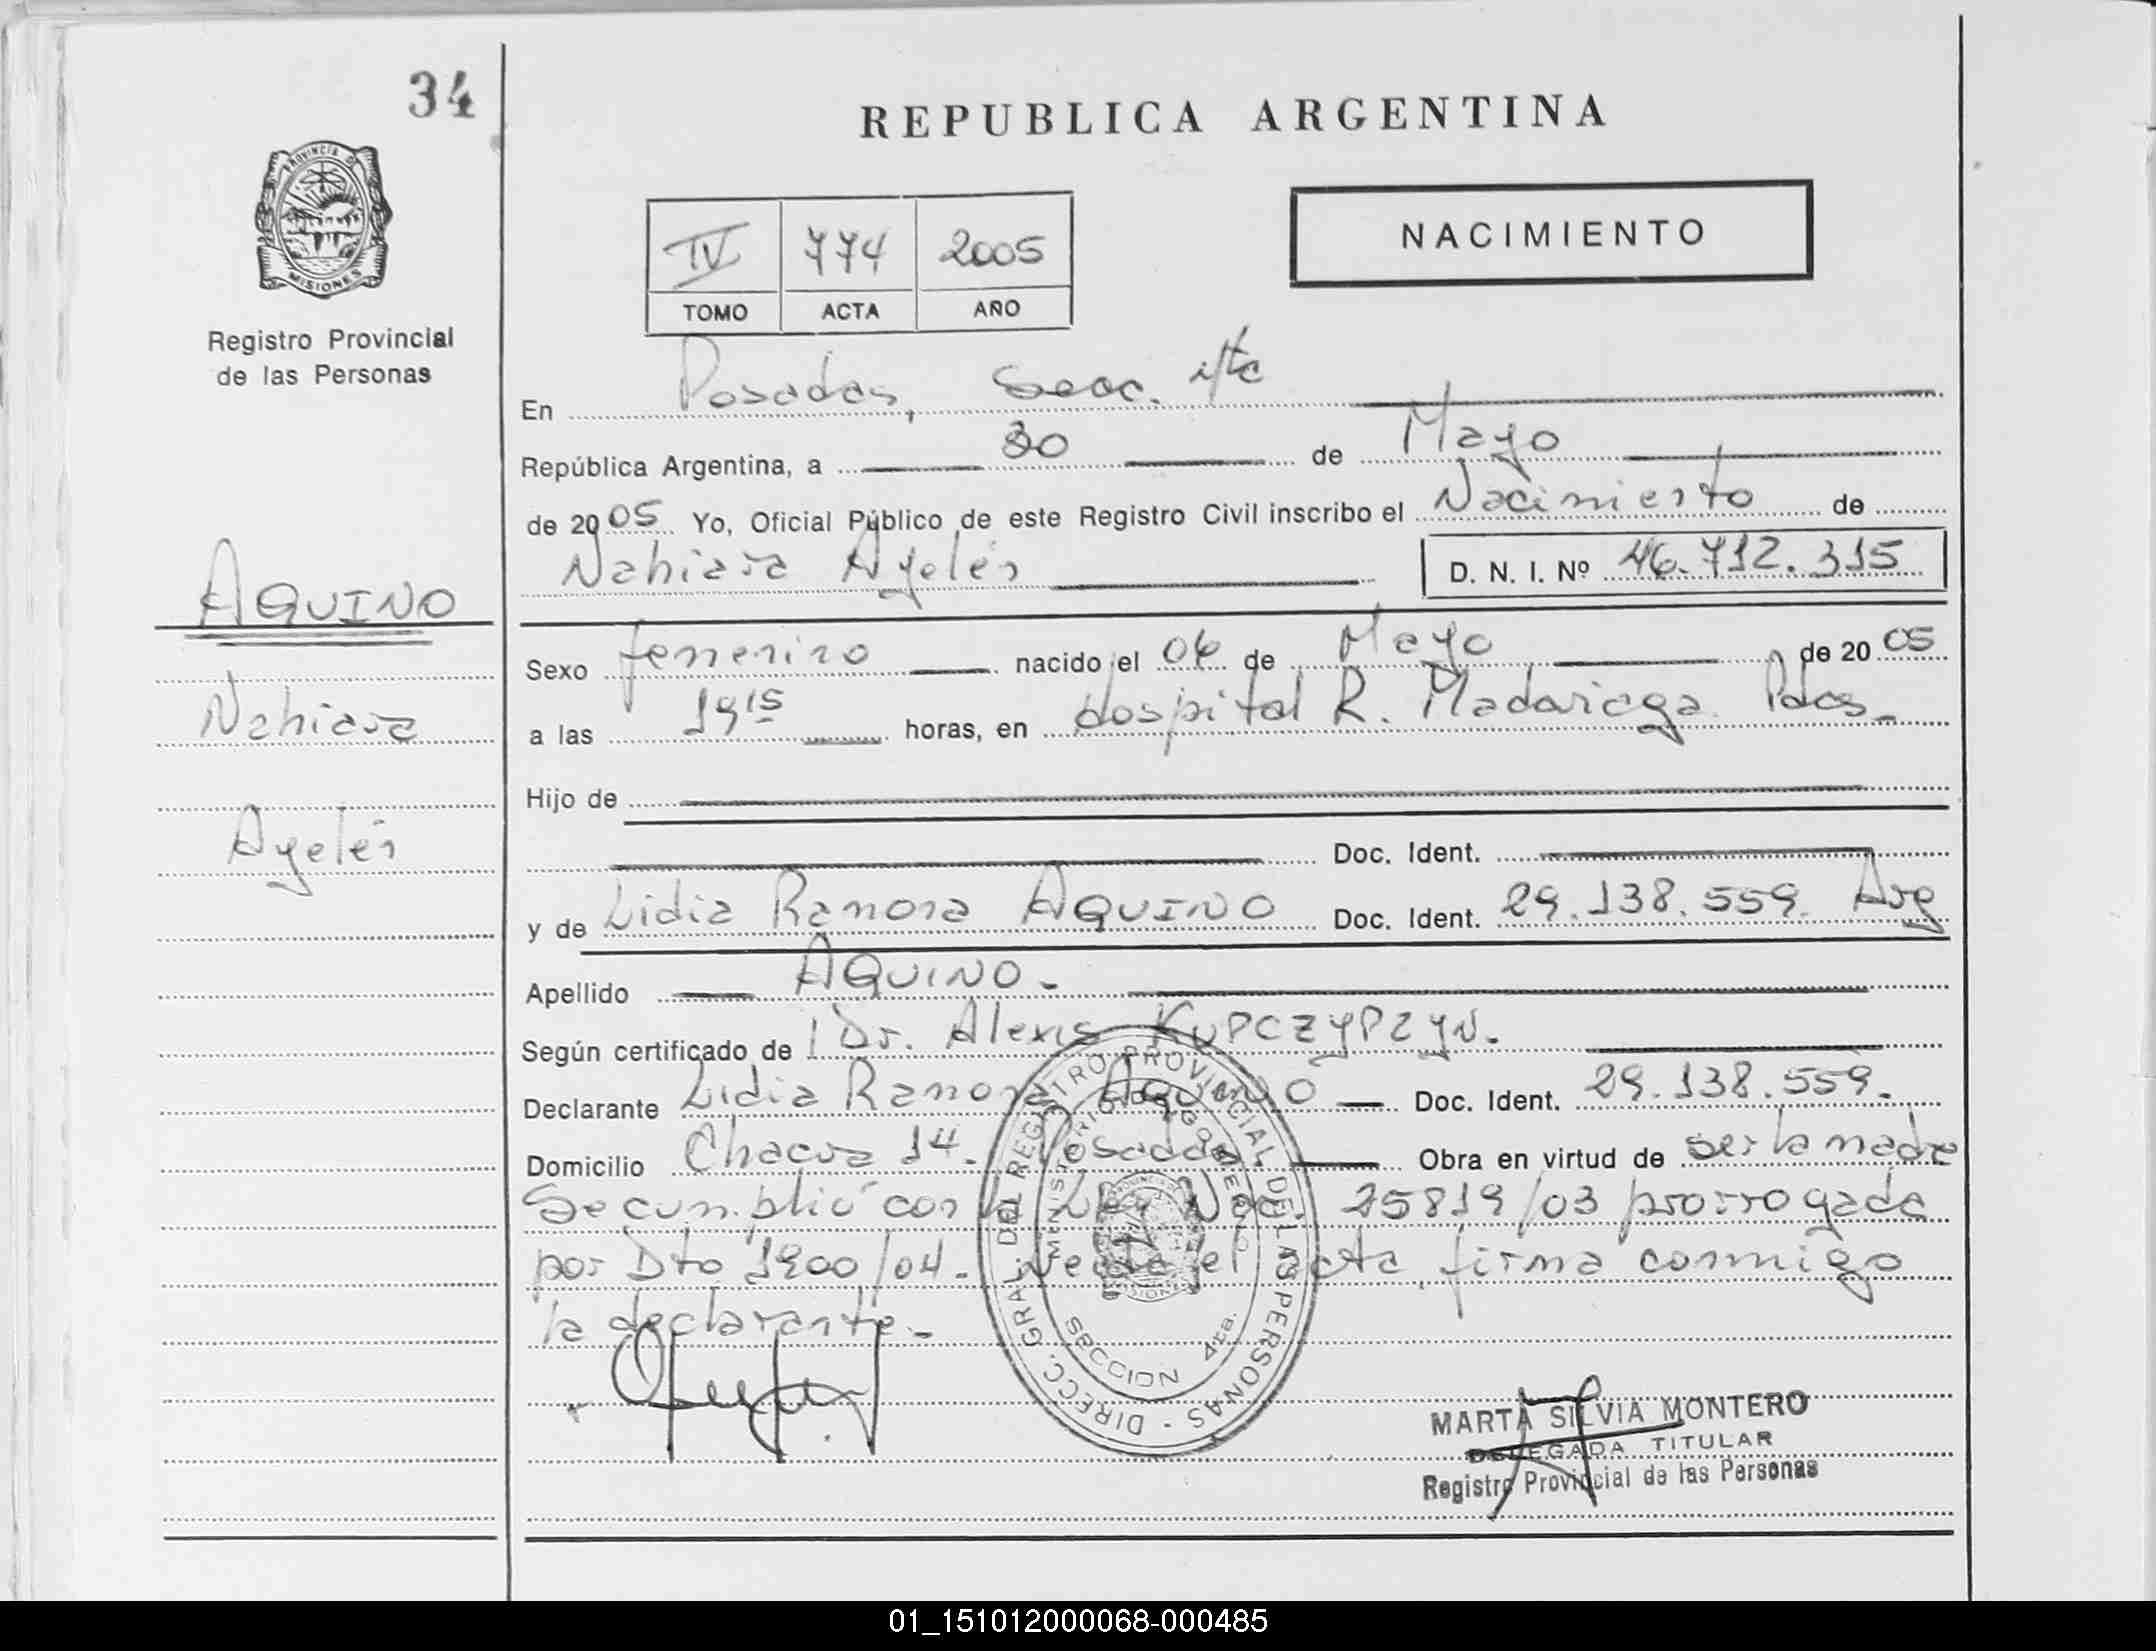 34
REPUBLICA ARGENTINA
PROVINCIA DE
MISIONES
Registro Provincial
de las Personas
IV 774 2005
TOMO ACTA AÑO
NACIMIENTO
En Posadas, Secc. 4ta
República Argentina, a 30 de Mayo
de 2005 Yo, Oficial Público de este Registro Civil inscribo el Nacimiento de
Nahiara Ayelén D. N. I. Nº 46.712.315
AQUINO
Nahiara
Ayelén
Sexo femenino nacido el 06 de Mayo de 2005
a las 19 15 horas, en Hospital R. Madariaga Pdas.
Hijo de
Doc. Ident.
y de Lidia Ramona AQUINO Doc. Ident. 29.138.559. Arg
Apellido AQUINO.-
Según certificado de Dr. Alexis
Declarante Lidia Ramona Aquino Doc. Ident. 29.138.559.
Domicilio Chacra 14. Posadas Obra en virtud de ser la madre
Se cumplió con la Ley Nac. 25819/03 prorrogada
por Dto 1900/04.- Leída el acta, firma conmigo
la declarante.-
DIRECC. GRAL. DEL REGISTRO PROVINCIAL DE LAS PERSONAS -
MINISTERIO DE GOBIERNO
SECCION 4ta.
MARTA SILVIA MONTERO
DELEGADA TITULAR
Registro Provincial de las Personas
01_151012000068-000485